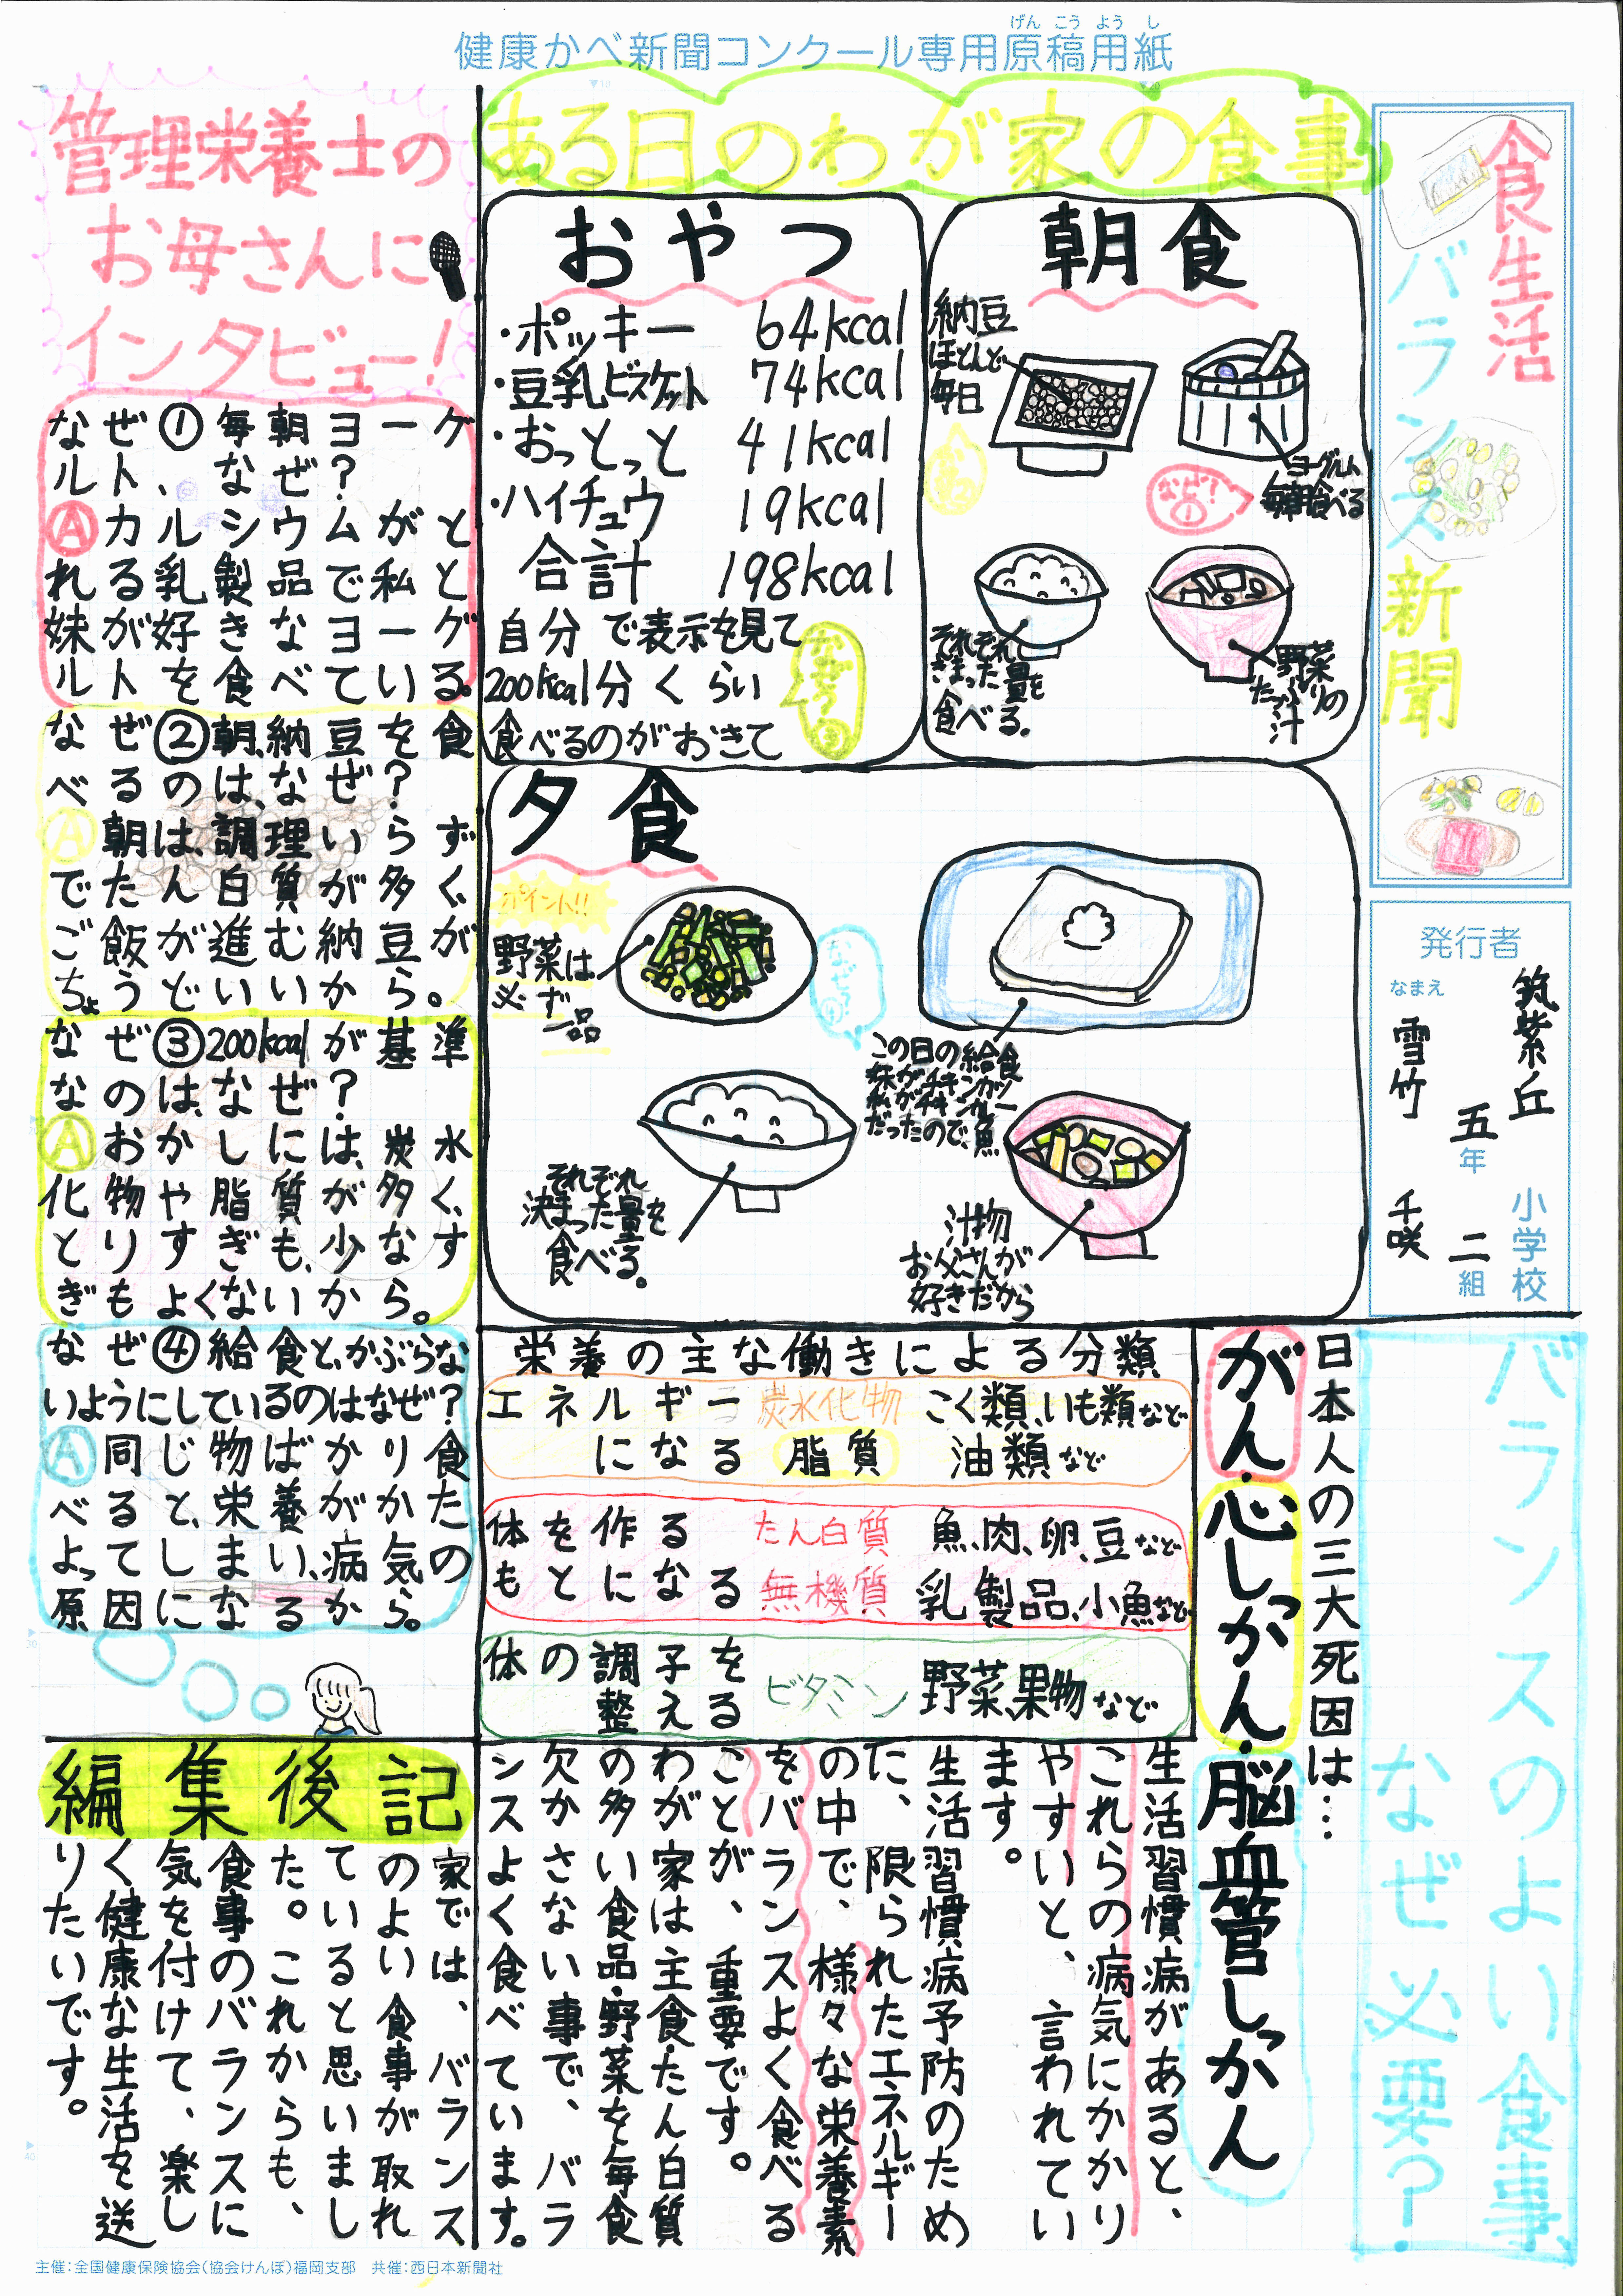 健康かべ新聞コンクール専用原稿用紙
げんこうようし
食生活
バランス
新聞
発行者
筑紫丘小学校
五年二組
なまえ
雪竹千咲
ある日のわが家の食事
朝食
納豆
ほとんど
毎日
ヨーグルト
毎朝食べる
なぜ?①
それぞれ
きまった量を
食べる。
野菜
たっぷりの
汁
おやつ
・ポッキー 64kcal
・豆乳ビスケット 74kcal
・おっとっと 41kcal
・ハイチュウ 19kcal
合計 198kcal
自分で表示を見て
200kcal分くらい
食べるのがおきて
夕食
ポイント!!
野菜は
必ず
一品
この日の給食
妹がチキンカツ
私がチキンカレー
だったので、魚
それぞれ
決まった量を
食べる。
汁物
お父さんが
好きだから
管理栄養士の
お母さんに
インタビュー!
なぜ①毎朝ヨーグ
ルト、なぜ?
Ⓐカルシウムがと
れる乳製品で私と
妹が好きなヨーグ
ルトを食べている。
なぜ②朝、納豆を食
べるのは、なぜ?
Ⓐ朝は、調理いらず
でたん白質が多く、
ご飯が進む納豆が
ちょうどいいから。
なぜ③200kcalが基準
なのは、なぜ?
Ⓐおかしには、炭水
化物や脂質が多く、
とりすぎも、少なす
ぎもよくないから。
なぜ④給食と、かぶらな
いようにしているのはなぜ?
Ⓐ同じ物ばかり食
べると、栄養がかた
よって、しまい、病気の
原因になるから。
バランスのよい食事
なぜ必要?
日本人の三大死因は…
がん・心しっかん・脳血管しっかん
栄養の主な働きによる分類
エネルギー 炭水化物 こく類、いも類など
になる 脂質 油類など
体を作る たん白質 魚、肉、卵、豆など
もとになる 無機質 乳製品、小魚など
体の調子を
整える ビタミン 野菜、果物など
生活習慣病があると、
これらの病気にかかり
やすいと、言われてい
ます。
生活習慣病予防のため
に、限られたエネルギー
の中で、様々な栄養素
をバランスよく食べる
ことが、重要です。
わが家は主食たん白質
の多い食品・野菜を毎食
欠かさない事で、バラ
ンスよく食べています。
編集後記
家では、バランス
のよい食事が取れ
ていると思いまし
た。これからも、
食事のバランスに
気を付けて、楽し
く健康な生活を送
りたいです。
主催:全国健康保険協会(協会けんぽ)福岡支部 共催:西日本新聞社